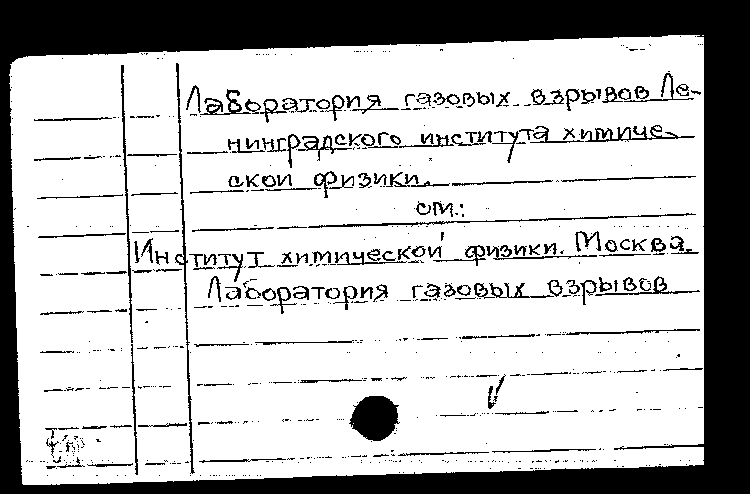 Лаборатория газовых взрывов Ле-
нинградского института химиче-
ской физики.
см.:
Институт химической физики. Москва.
Лаборатория газовых взрывов